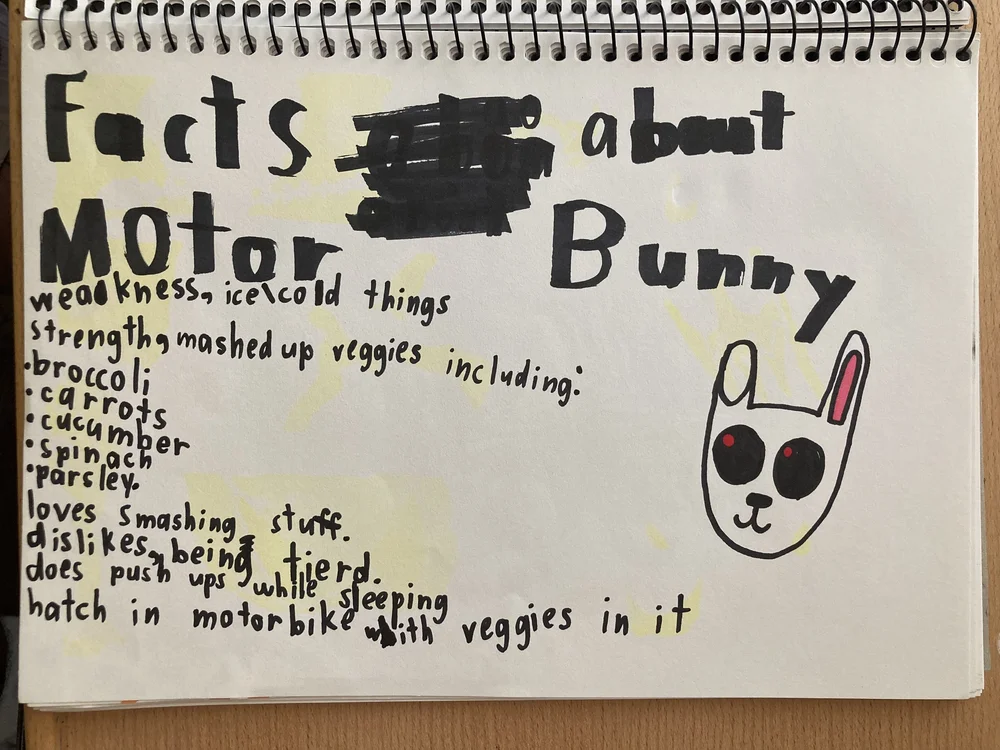 Facts about
Motor Bunny
weakness, ice\cold things
strength, mashed up veggies including:
·broccoli
·carrots
·cucumber
·spinach
·parsley.
loves smashing stuff.
dislikes, being tierd.
does push ups while sleeping
hatch in motorbike with veggies in it